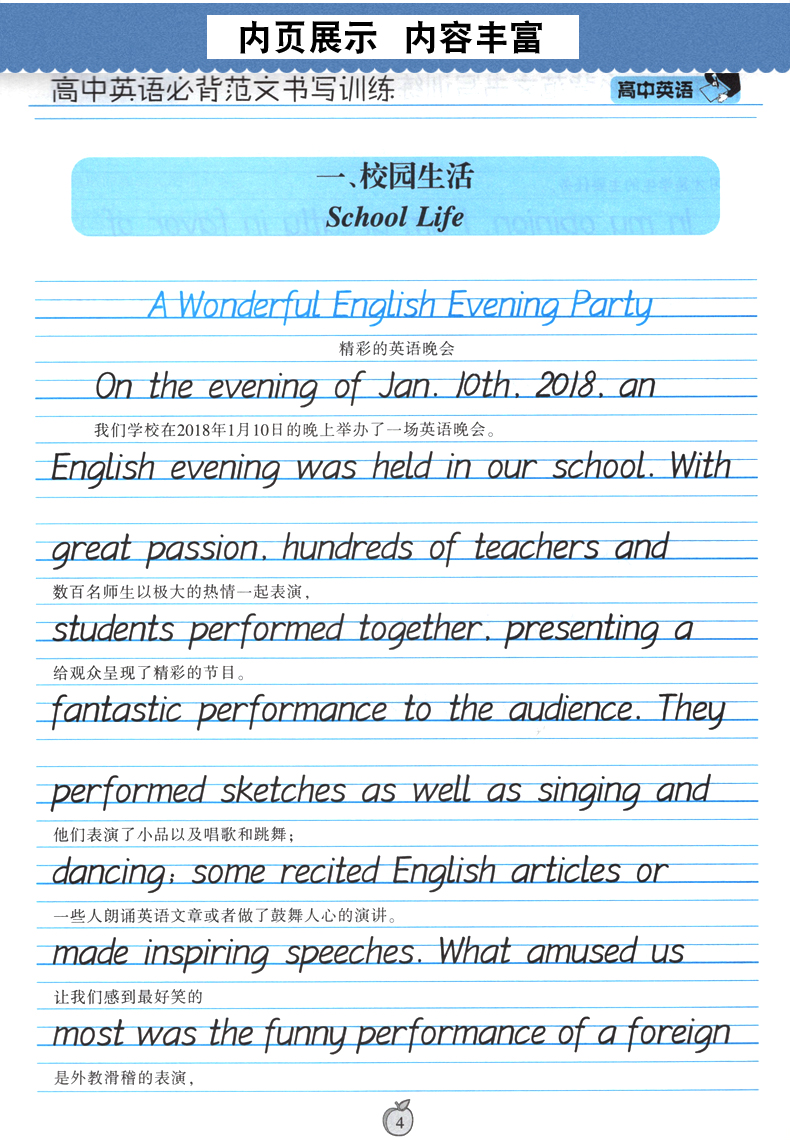 内页展示 内容丰富
高中英语必背范文书写训练
高中英语
一、校园生活
School Life
A Wonderful English Evening Party
精彩的英语晚会
On the evening of Jan. 10th, 2018, an
我们学校在2018年1月10日的晚上举办了一场英语晚会。
English evening was held in our school. With
great passion, hundreds of teachers and
数百名师生以极大的热情一起表演，
students performed together, presenting a
给观众呈现了精彩的节目。
fantastic performance to the audience. They
performed sketches as well as singing and
他们表演了小品以及唱歌和跳舞；
dancing; some recited English articles or
一些人朗诵英语文章或者做了鼓舞人心的演讲。
made inspiring speeches. What amused us
让我们感到最好笑的
most was the funny performance of a foreign
是外教滑稽的表演，
4